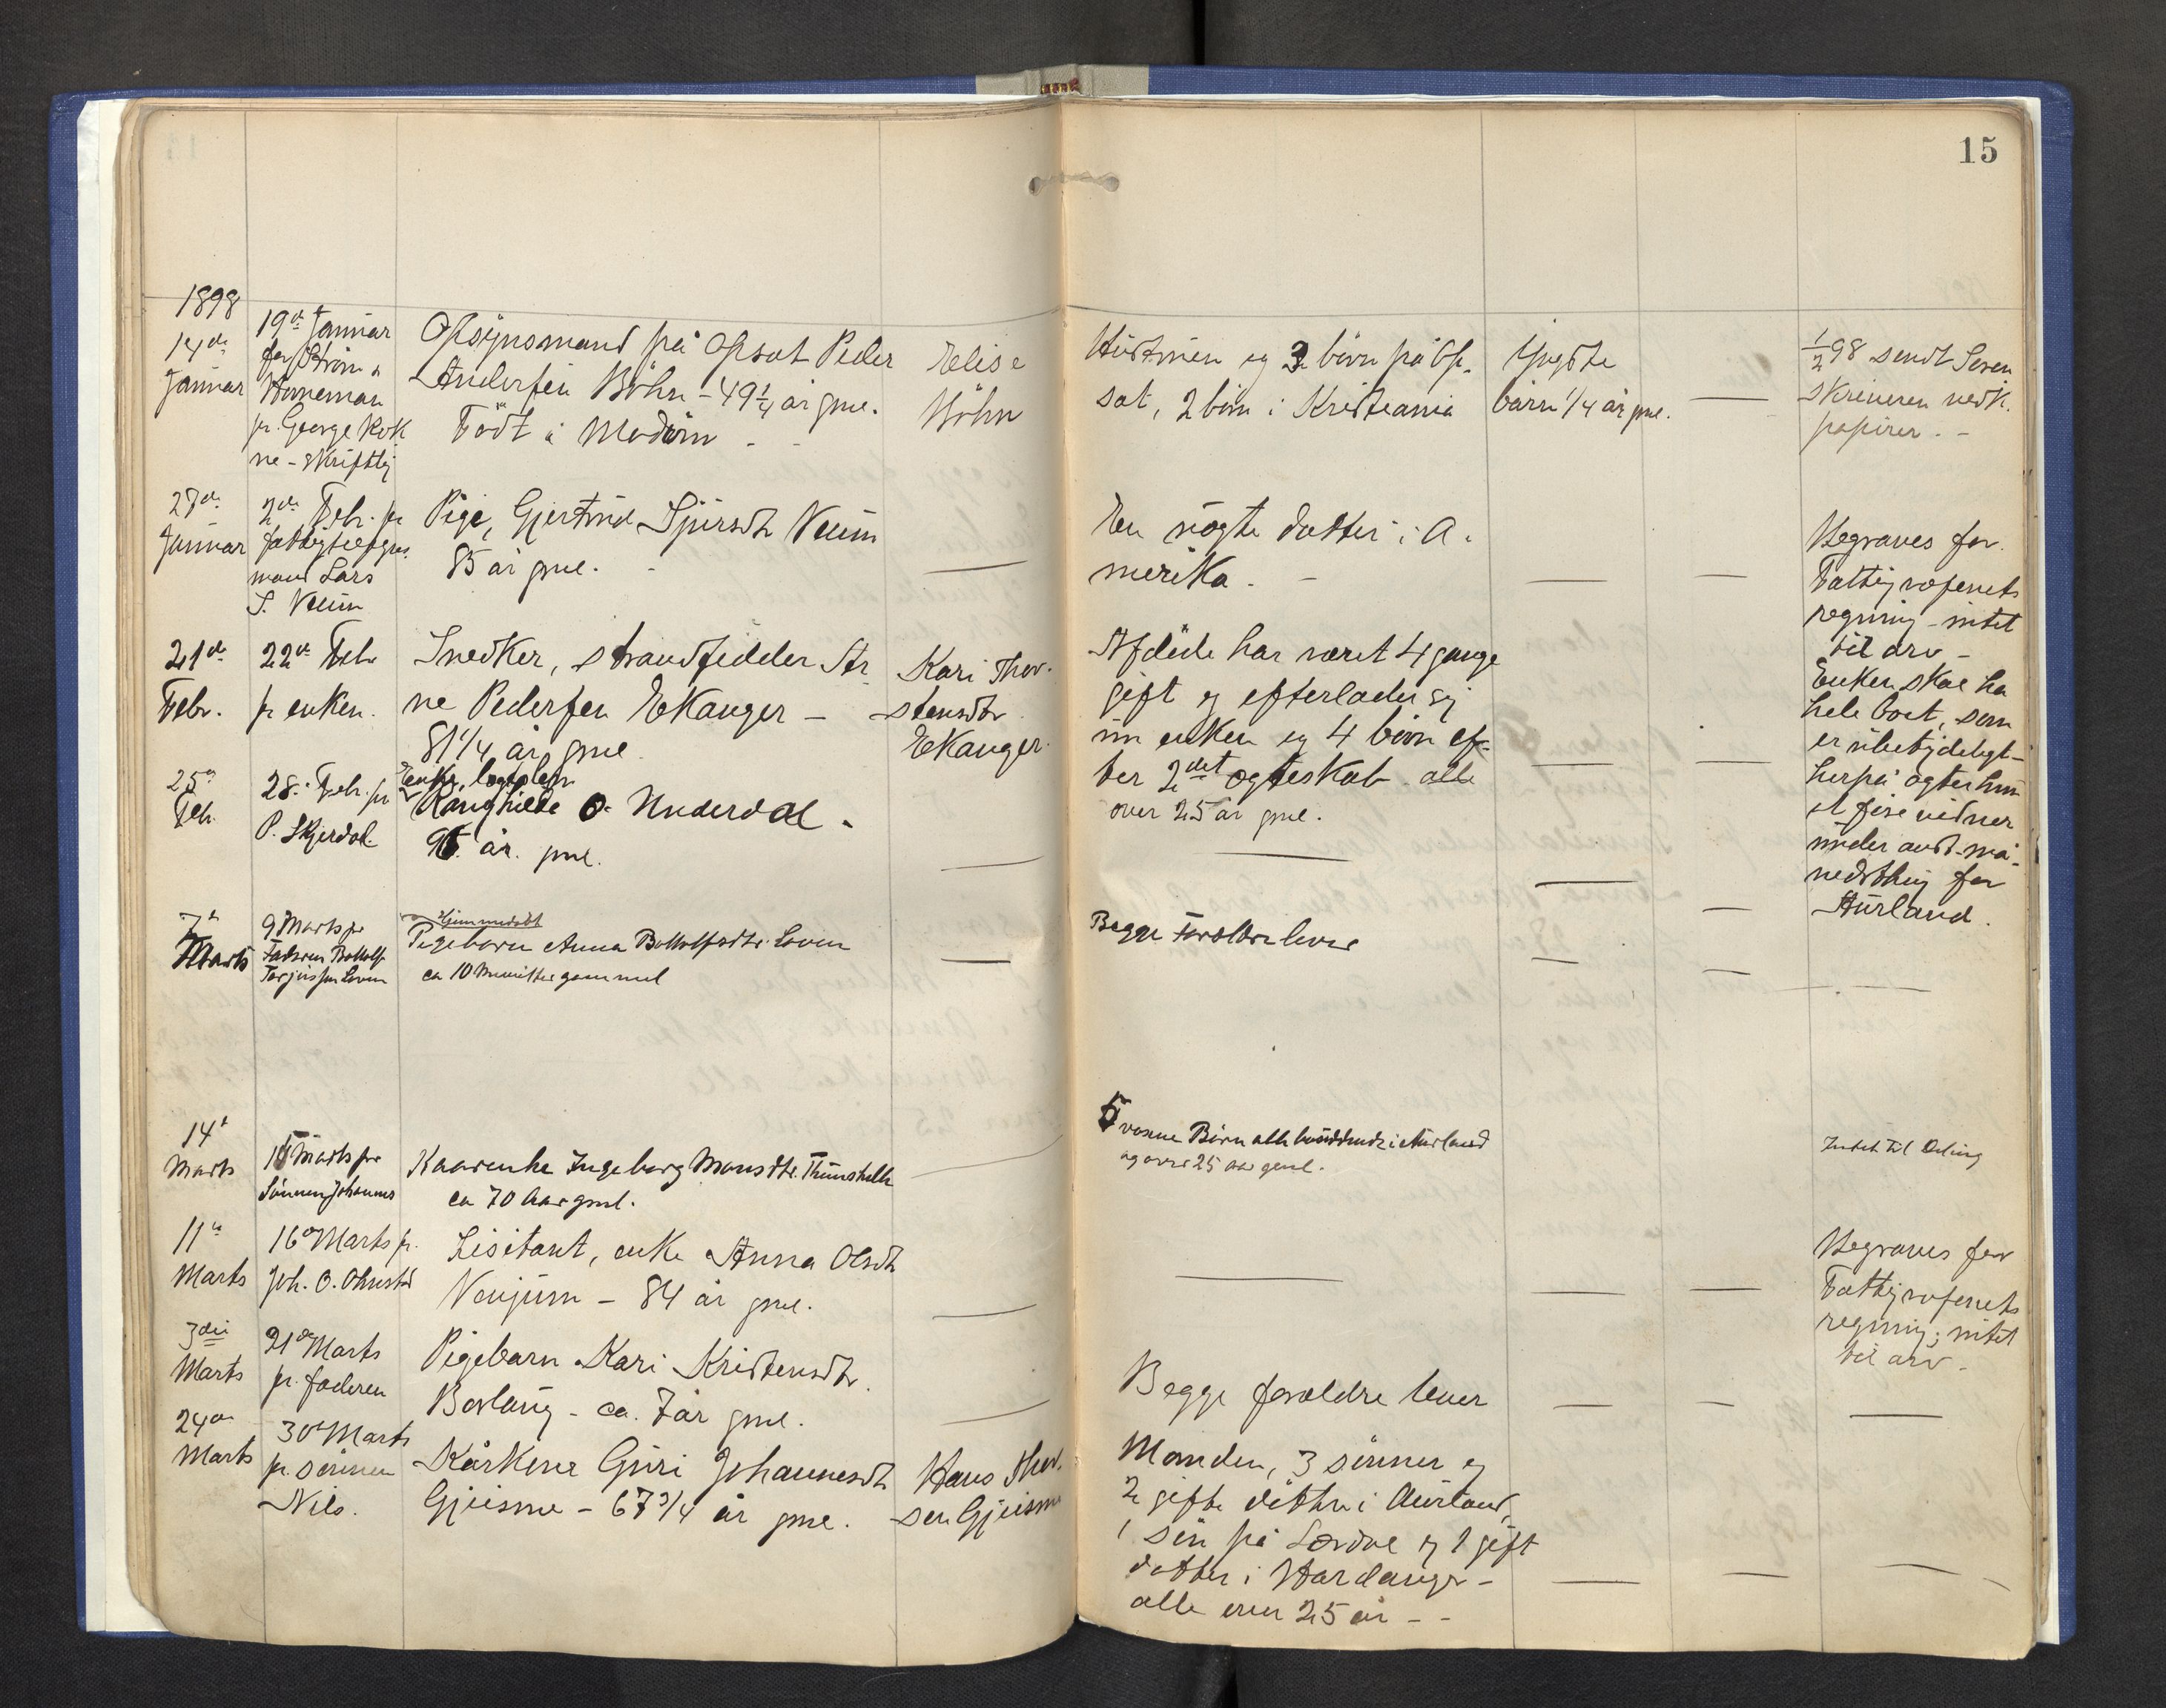 15
1898
14de
Januar
19de Januar
for
Horneman
pr. George Kok
ne - skriftlig
Opsynsmand på Opsat Peder
Andersen Böhn - 49 1/4 år gml.
Född i Modum -
Elise
Böhn
Hustruen og 3 börn på Op-
sat, 2 börn i Kristiania
Yngste
barn 1/4 år gml.
1/2 98 sendt Soren
skriveren vedk.
papirer. -
27de
Januar
2den Febr. pr
fattigtilsyns
mand Lars
S. Veum
Pige, Gjertrud Sjursdtr Veum
85 år gml. -
En uægte datter i A-
merika. -
Begraves for
Fattigvæsenets
regning - intet
til arv -
21de
Febr.
22de Febr
pr enken.
Snedker, strandsidder Ar
ne Pedersen Ekanger -
81 1/4 år gml
Kari Thor-
stensdtr
Ekanger
Afdöde har været 4 gange
gift og efterlader sig
nu enken og 4 börn ef-
ter 2det ægteskab alle
over 25 år gml.
Enken skal ha
hele boet, som
er ubetydeligt -
herpå agter hun
at före vidner
under aust-må-
nedsthing for
Aurland.
25de
Feb.
28. Febr. pr
P. Skjerdal.
Enke, lægdslem
Ranghilde O. Underdal.
96 år. gml.
7de
Marts
9 Marts pr
Faderen Bottolf
Torjussen Loven
Hjemmedöbt
Pigebarn Anna Bottolfsdtr. Loven
ca 10 Minutter gammel
Begge Forældre lever
14de
Marts
15 Marts pr
Sönnen Johannes
Kaarenke Ingeborg Monsdtr. Thunshelle
ca 70 Aar gml.
5 voxne Börn alle hjemmehörende i Aurland
og over 25 aar gml.
Intet til Deling
11te
Marts
16de Marts pr.
Joh. O. Ohnstad
Lisitant, enke Anna Olsdtr
Venjum - 84 år gml.
Begraves for
Fattigvæsenets
regning; intet
til arv -
3die
Marts
21de Marts
pr. faderen
Pigebarn Kari Kristensdtr.
Borlaug - ca. 7 år gml.
Begge forældre lever
24de
Marts
30de Marts
pr. sönnen
Nils.
Kårkone Guri Johannesdtr
Gjeisme - 67 3/4 år gml.
Hans Thor-
sen Gjeisme
Manden, 3 sönner og
2 gifte dötre i Aurland,
1 sön på Lærdal og 1 gift
datter i Hardanger -
alle over 25 år - -